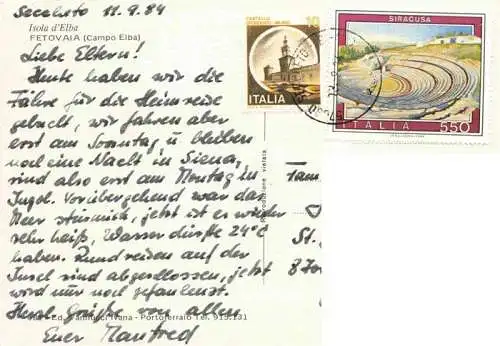 Seccheto 11.9.84
Isola d'Elba
FETOVAIA (Campo Elba)
Liebe Eltern!
Heute haben wir die
Fähre für die Heimreise
gebucht, wir fahren aber
erst am Sonntag u bleiben
noch eine Nacht in Siena,
sind also erst am Montag in
Ingol. Vorübergehend war das
Meer stürmisch, jetzt ist es wieder
sehr heiß, Wasser dürfte 24°C
haben. Rundreisen auf der
Insel sind abgeschlossen, jetzt
wird nur noch gefaulenzt.
Herzl. Grüße von allen
Euer Manfred
Ed. Vannucci Ivana - Portoferraio Tel. 915.131
Riproduzione vietata
10
ITALIA
SIRACUSA
ITALIA 550
St.